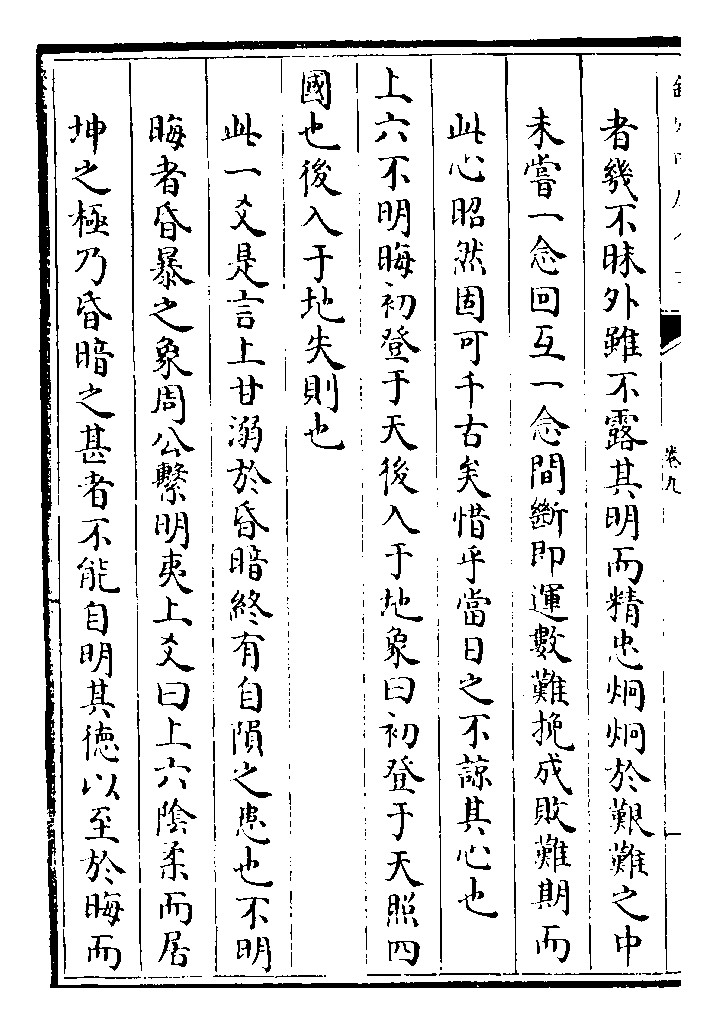 卷九
者幾不昧外雖不露其明而精忠炯炯於艱難之中
未嘗一念回互一念間斷即運數難挽成敗難期而
此心昭然固可千古矣惜乎當日之不諒其心也
上六不明晦初登于天後入于地象曰初登于天照四
國也後入于地失則也
此一爻是言上甘溺於昏暗終有自隕之患也不明
晦者昏暴之象周公繫明夷上爻曰上六陰柔而居
坤之極乃昏暗之甚者不能自明其德以至於晦而